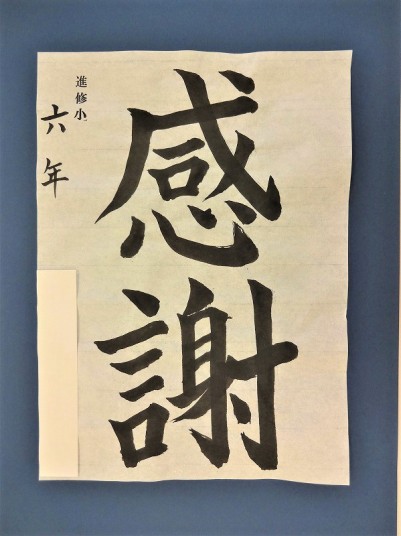 感謝
進修小
六年